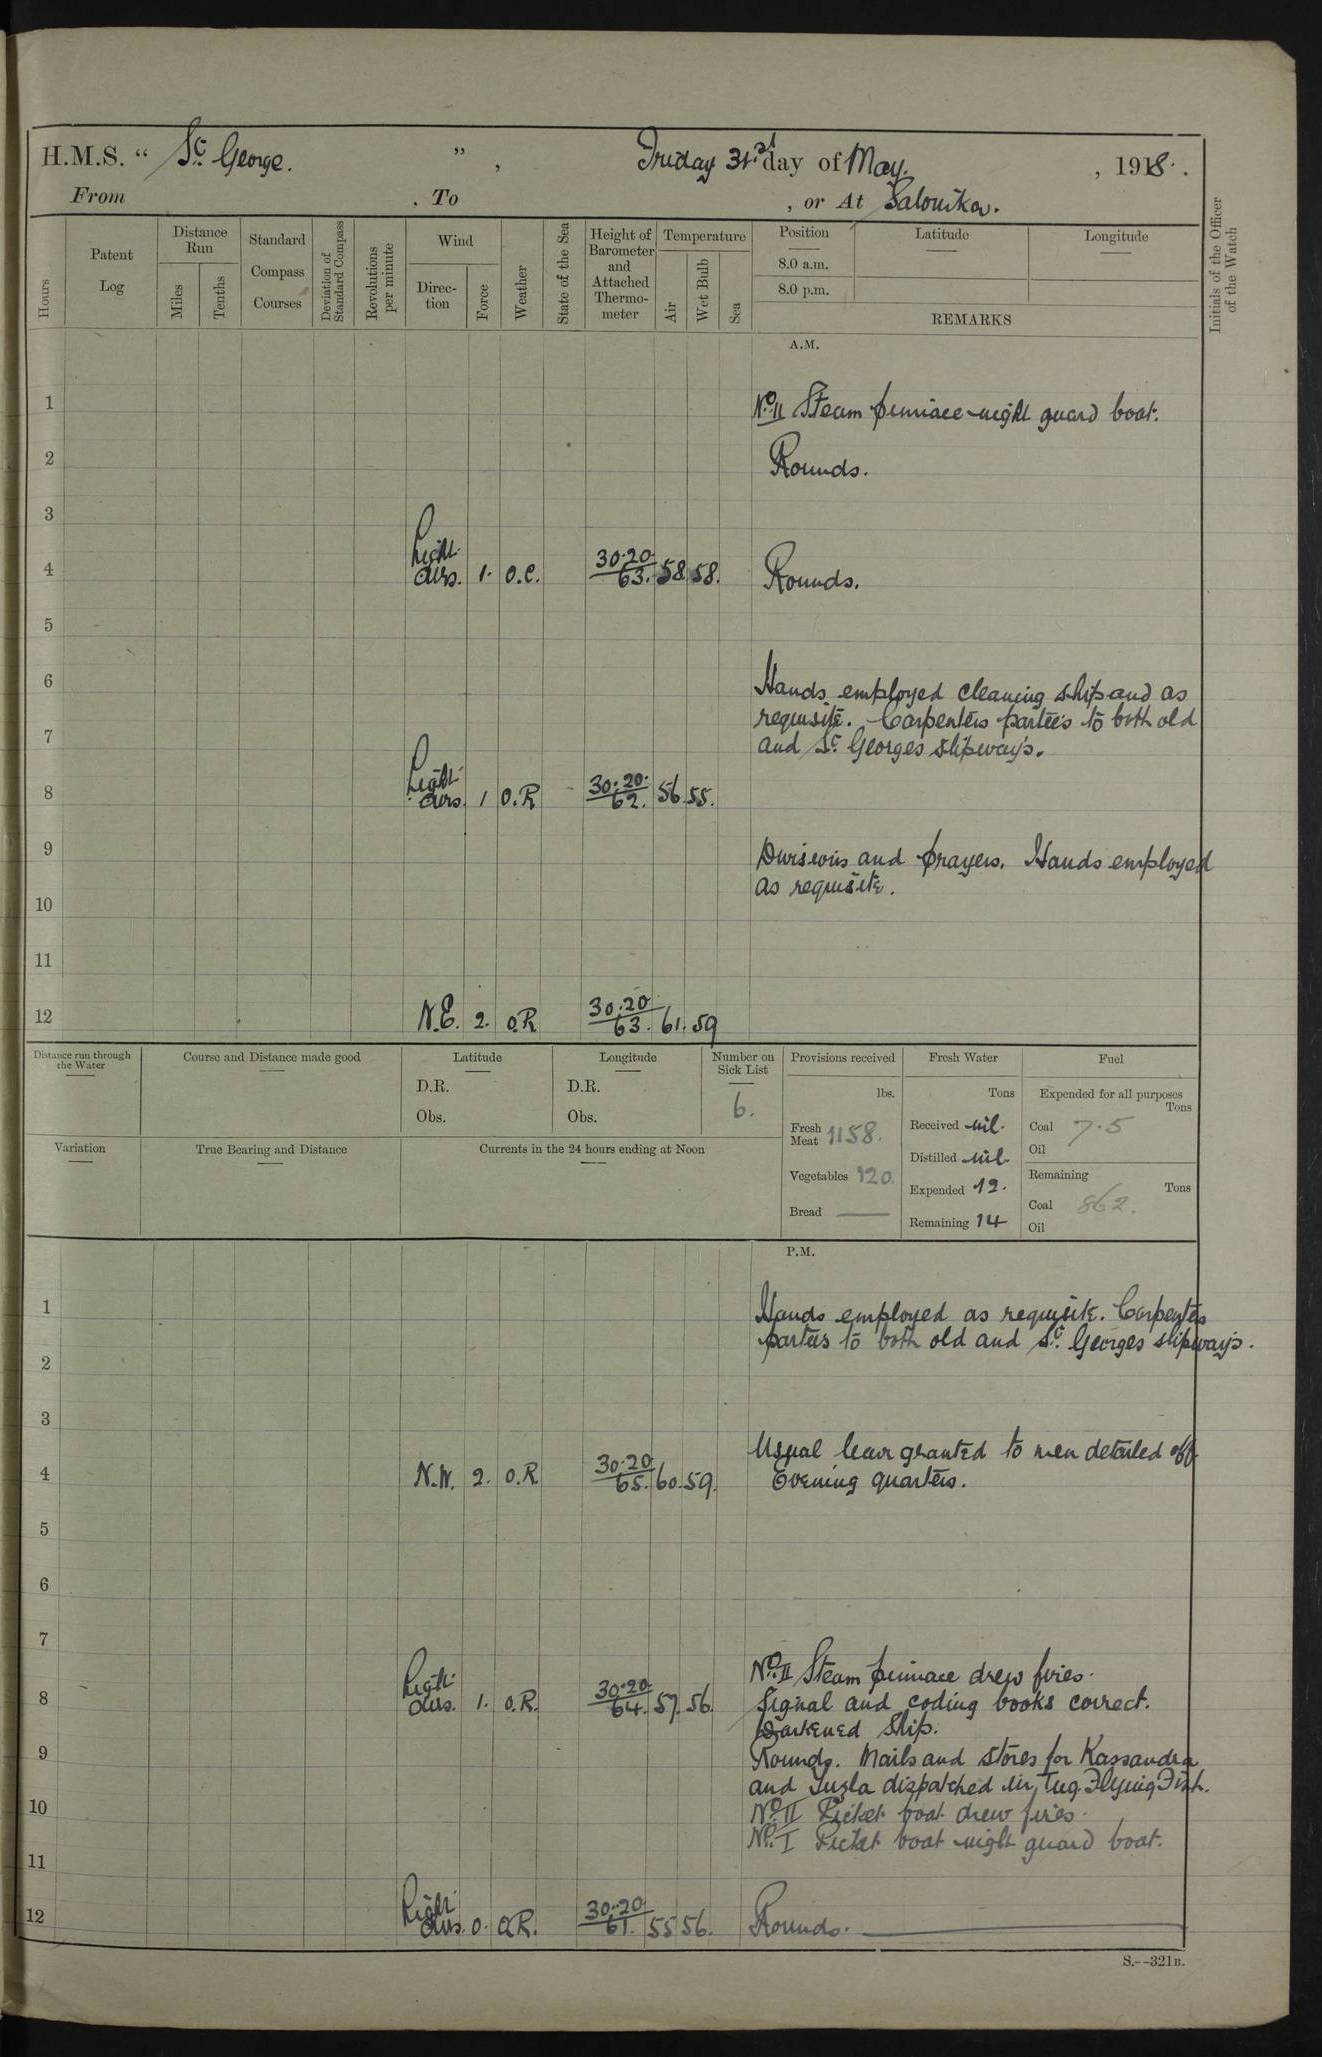 H.M.S. “ St. George. ” , Friday 31st day of May. , 1918.
From , To , or At Salonika.
Hours
Patent Log
Distance Run
Miles
Tenths
Standard Compass Courses
Deviation of Standard Compass
Revolutions per minute
Wind
Direction
Force
Weather
State of the Sea
Height of Barometer and Attached Thermometer
Temperature
Air
Wet Bulb
Sea
Position
8.0 a.m.
8.0 p.m.
Latitude
Longitude
REMARKS
Initials of the Officer of the Watch
A.M.
1 No. II Steam pinnace night guard boat.
2 Rounds.
3
4 Light airs. 1. O.C. 30.20. 63. 58. 58. Rounds.
5
6 Hands employed cleaning ship and as
requisite. Carpenters parties to both old
7 and St. Georges slipways.
8 Light airs. 1 O.R 30.20. 62. 56. 55.
9 Divisions and prayers. Hands employed
as requisite.
10
11
12 N.E. 2. O.R 30.20 63. 61. 59
Distance run through the Water
Course and Distance made good
Latitude
D.R.
Obs.
Longitude
D.R.
Obs.
Number on Sick List
6.
Provisions received
lbs.
Fresh Meat 1158.
Vegetables 120.
Bread —
Fresh Water
Tons
Received nil.
Distilled nil.
Expended 12.
Remaining 14
Fuel
Expended for all purposes
Tons
Coal 7.5
Oil
Remaining
Tons
Coal 862.
Oil
Variation
True Bearing and Distance
Currents in the 24 hours ending at Noon
P.M.
1 Hands employed as requisite. Carpenters
parties to both old and St. Georges slipways.
2
3
Usual leave granted to men detailed off
4 N.W. 2. O.R. 30.20 65. 60. 59. Evening quarters.
5
6
7
No. II Steam pinnace drew fires.
8 Light airs. 1. O.R. 30.20 64. 57. 56. Signal and coding books correct.
Darkened Ship.
9 Rounds. Mails and stores for Kassandra
and Tuzla dispatched in Tug Flying Fish.
10 No. II Picket boat drew fires.
No. I Picket boat night guard boat.
11
12 Light airs. 0. O.R. 30.20 61. 55 56. Rounds.
S.--321B.